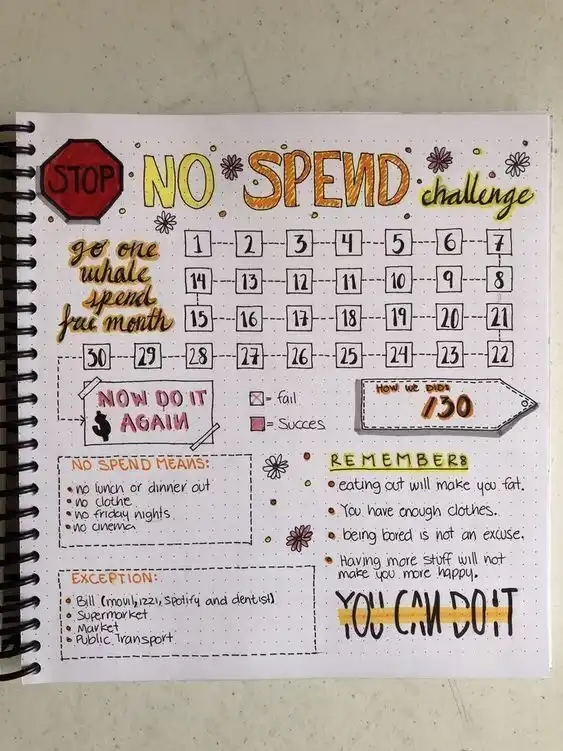 STOP
NO SPEND challenge
go one
whale
spend
free month
1 2 3 4 5 6 7
14 13 12 11 10 9 8
15 16 17 18 19 20 21
30 29 28 27 26 25 24 23 22
NOW DO IT
$ AGAIN
X = fail
= Succes
HOW WE DID:
/30
NO SPEND MEANS:
• no lunch or dinner out
• no clothe
• no friday nights
• no cinema
REMEMBER:
• eating out will make you fat.
• You have enough clothes.
• being bored is not an excuse.
• Having more stuff will not
make you more happy.
EXCEPTION:
• Bill (movil, 1221, spotify and dentist)
• Supermarket
• Market
• Public Transport
YOU CAN DO IT